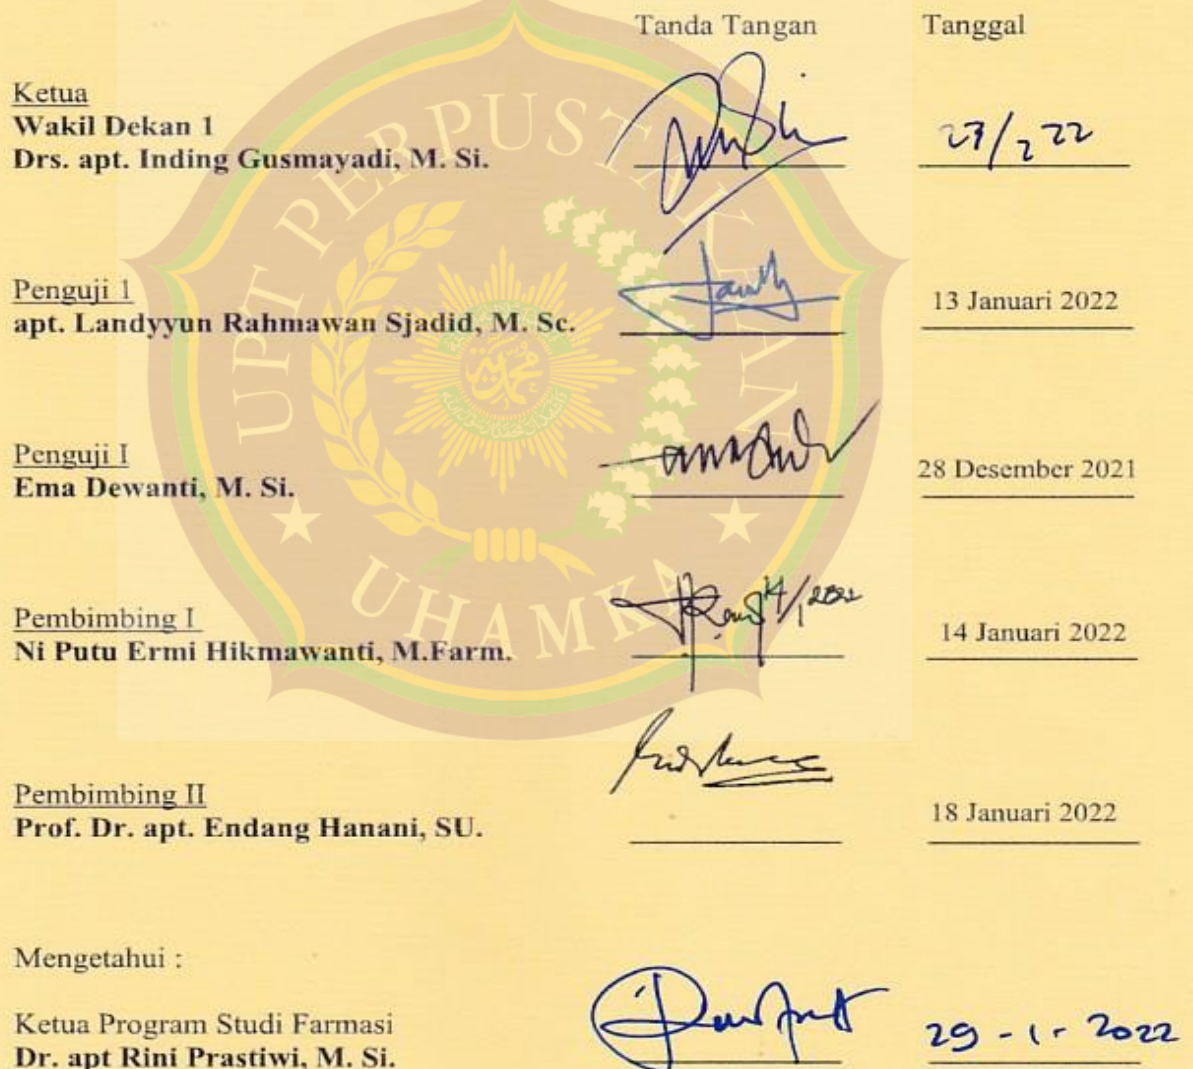 Tanda Tangan Tanggal
Ketua
Wakil Dekan 1
Drs. apt. Inding Gusmayadi, M. Si.
27/2 22
Penguji 1
apt. Landyyun Rahmawan Sjadid, M. Sc.
13 Januari 2022
Penguji I
Ema Dewanti, M. Si.
28 Desember 2021
Pembimbing I
Ni Putu Ermi Hikmawanti, M.Farm.
14/1 2022
14 Januari 2022
Pembimbing II
Prof. Dr. apt. Endang Hanani, SU.
18 Januari 2022
Mengetahui :
Ketua Program Studi Farmasi
Dr. apt Rini Prastiwi, M. Si.
29 - 1 - 2022
UPT PERPUSTAKAAN
UHAMKA